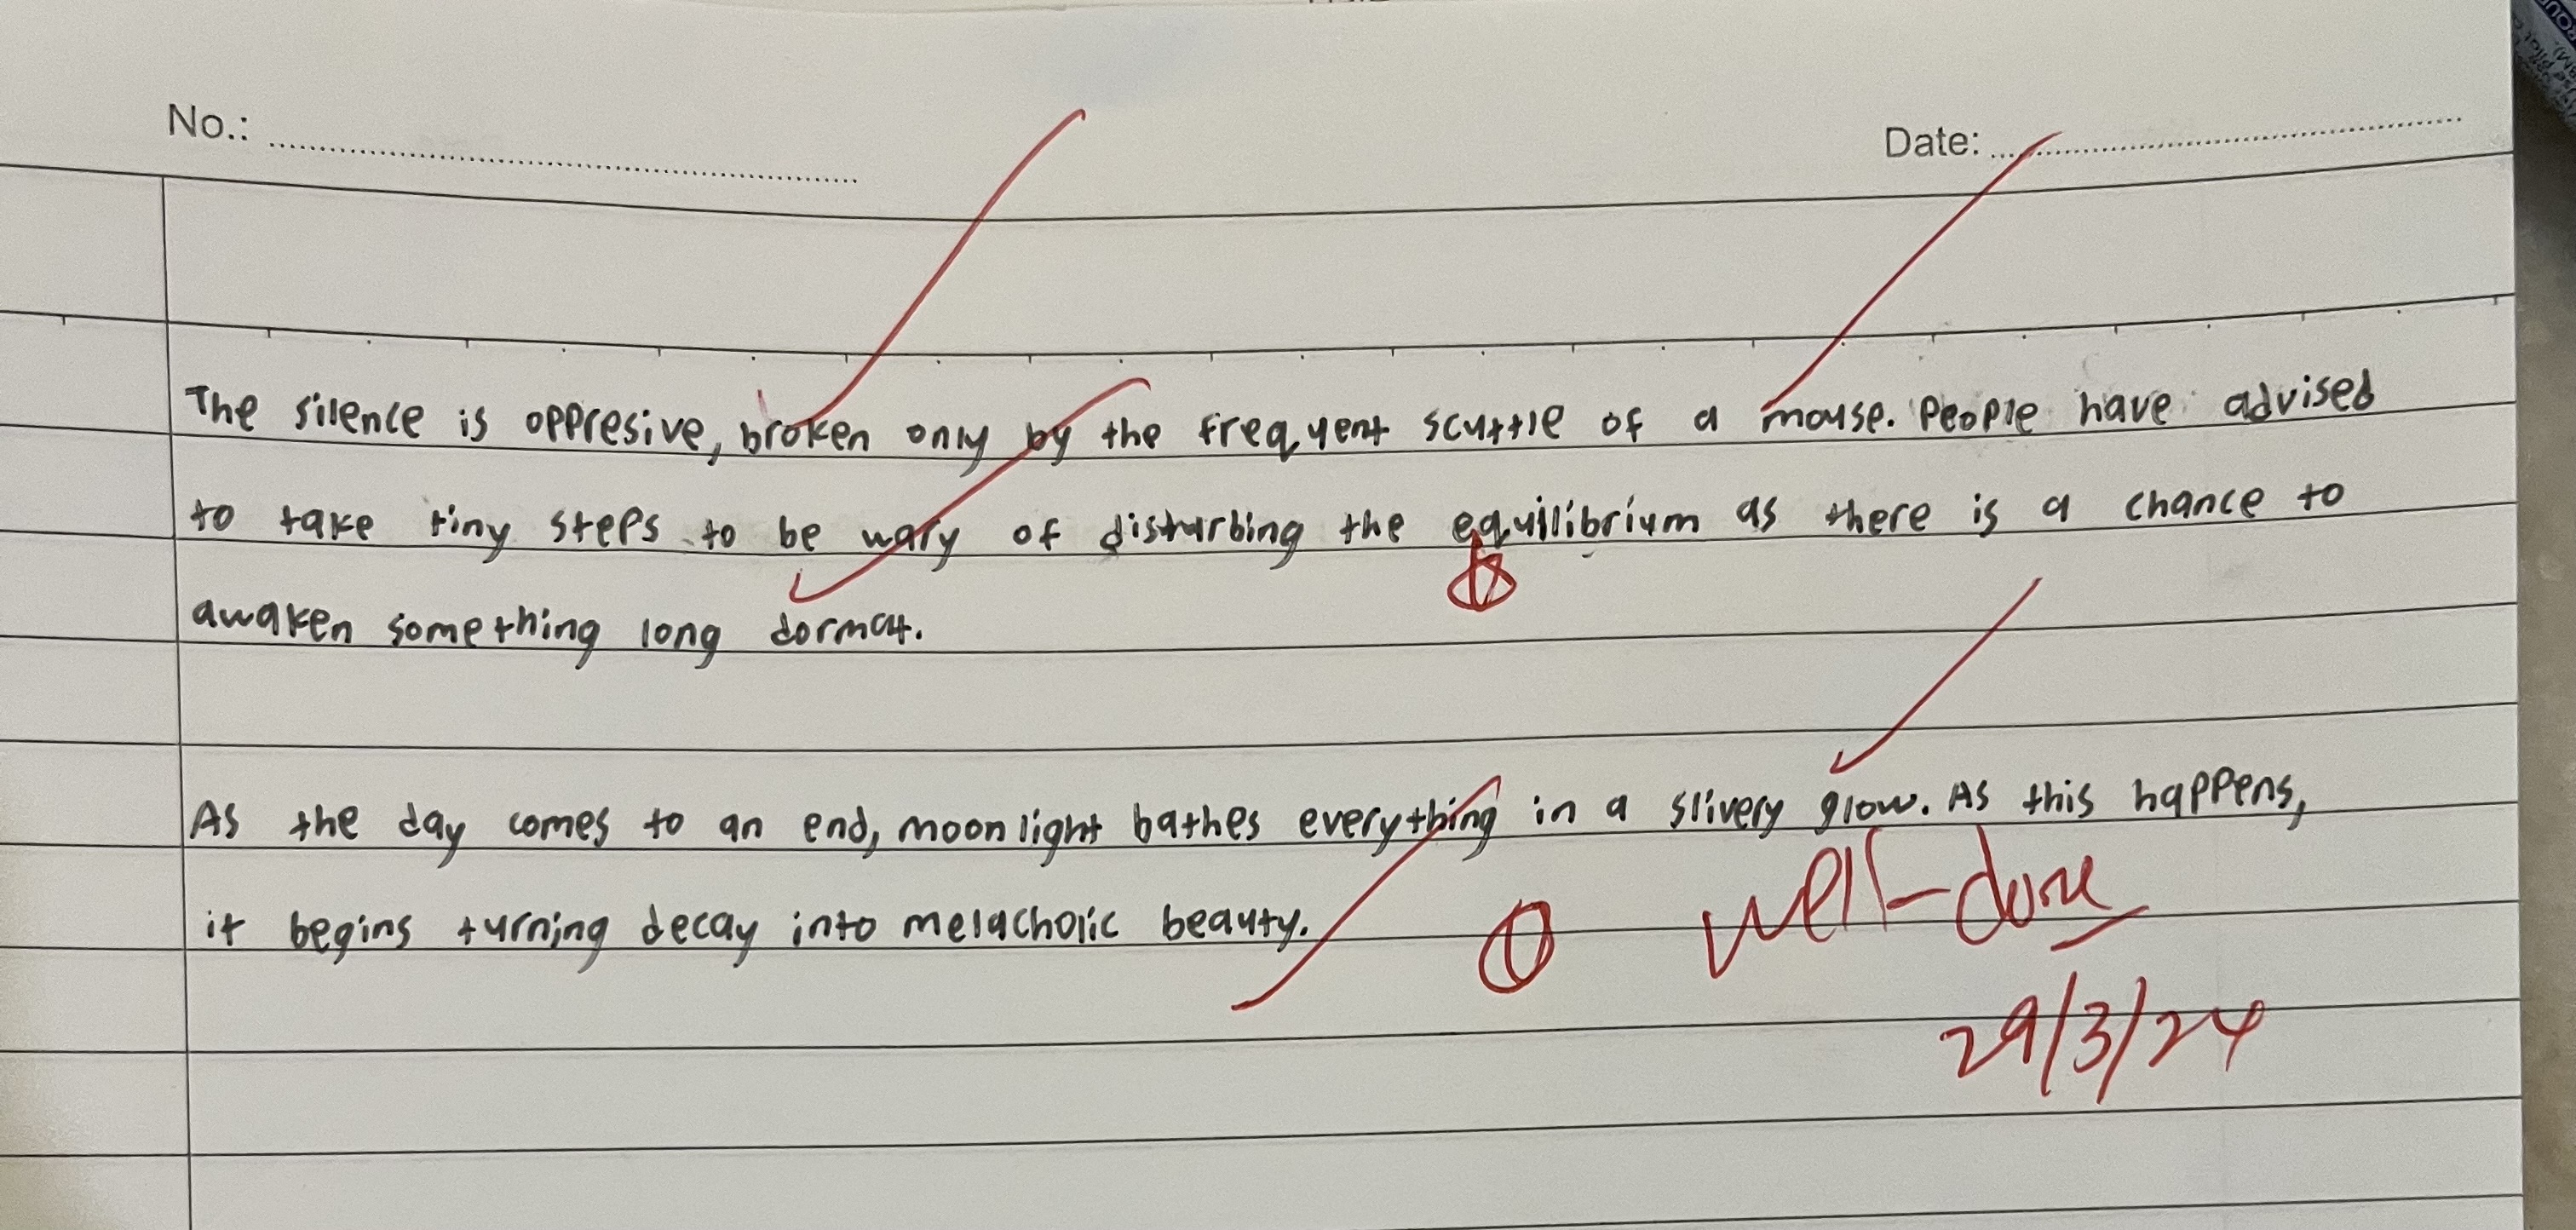 No.:
Date:
The silence is oppresive, broken only by the frequent scuttle of a mouse. People have advised
to take tiny steps to be wary of disturbing the equilibrium as there is a chance to
awaken something long dormat.
As the day comes to an end, moonlight bathes everything in a slivery glow. As this happens,
it begins turning decay into melacholic beauty.
Well-done
29/3/24